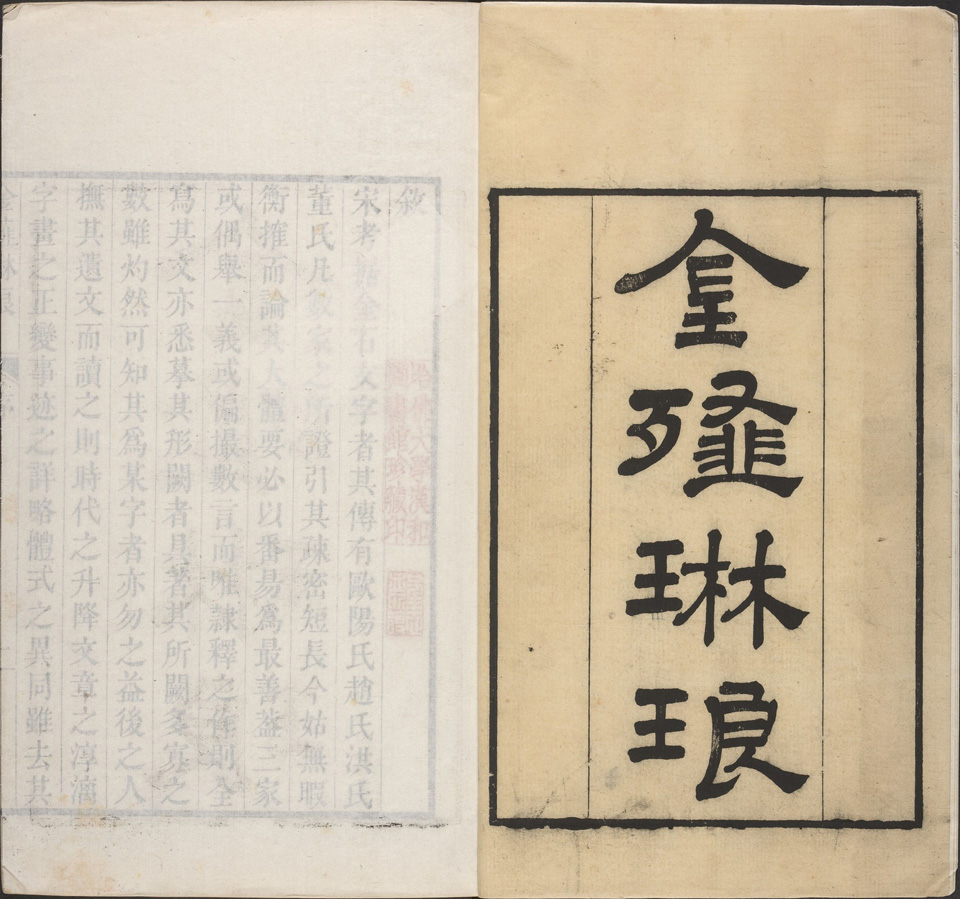 金薤琳琅
敘
宋考金石文字者其傳有歐陽氏趙氏洪氏
董氏凡數家之所證引其疎密短長今姑無暇
衡搉而論其大體要必以番昜爲最善蓋三家
或偶舉一義或偏撮數言而唯隷釋之作則全
寫其文亦悉摹其形闕者具著其所闕多寡之
數雖灼然可知其爲某字者亦勿之益後之人
撫其遺文而讀之則時代之升降文章之淳漓
字畫之正變事蹟之詳略體式之異同雖去其
哈佛大學漢和
圖書館珍藏印